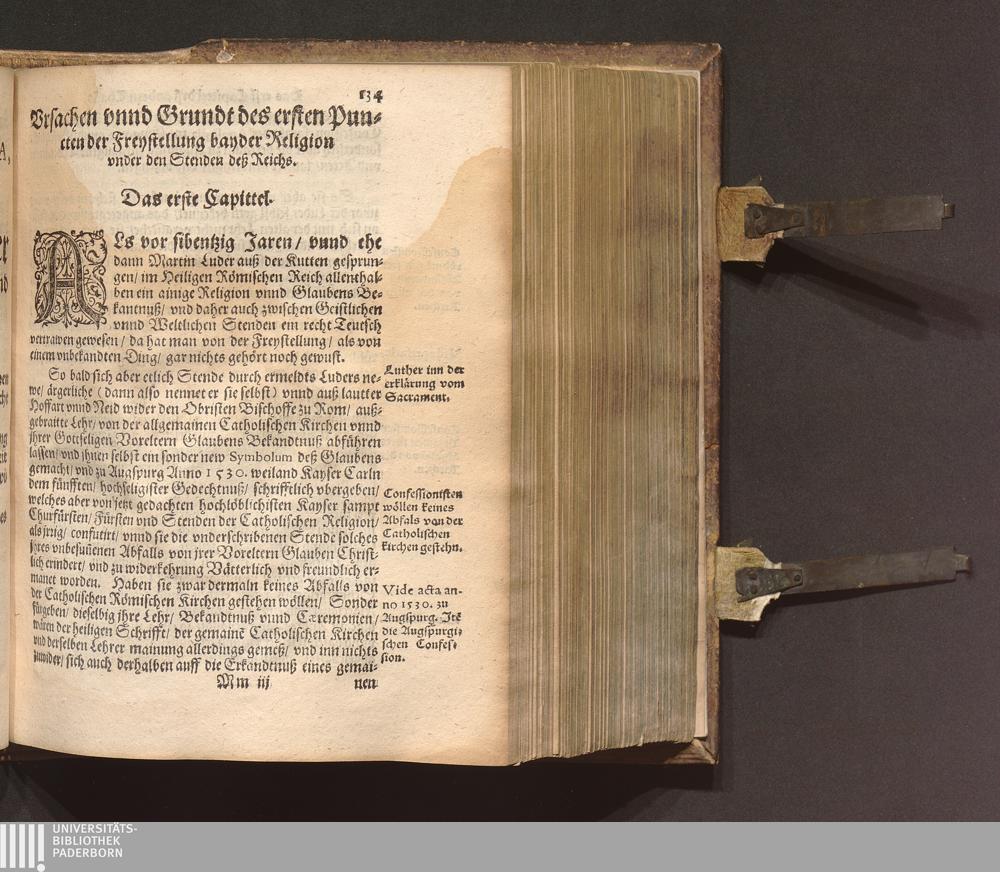 134
Vrsachen vnnd Grundt des ersten Pun-
cten der Freystellung bayder Religion
vnder den Stenden deß Reichs.
Das erste Capittel.
ALs vor sibentzig Jaren/ vnnd ehe
dann Martin Luder auß der Kutten gesprun-
gen/ im Heiligen Römischen Reich allenthal-
ben ein ainige Religion vnnd Glaubens Be-
kantnuß/ vnd daher auch zwischen Geistlichen
vnnd Weltlichen Stenden ein recht Teutsch
vertrawen gewesen/ da hat man von der Freystellung/ als von
einem vnbekandten Ding/ gar nichts gehört noch gewust.
So bald sich aber etlich Stende durch ermeldts Luders ne-
we/ ärgerliche (dann also nennet er sie selbst) vnnd auß lautter
Hoffart vnnd Neid wider den Obristen Bischoffe zu Rom/ auß-
gebraitte Lehr/ von der allgemainen Catholischen Kirchen vnnd
jhrer Gottseligen Voreltern Glaubens Bekandtnuß abführen
lassen/ vnd jhnen selbst ein sonder new Symbolum deß Glaubens
gemacht/ vnd zu Augspurg Anno 1530. weiland Kayser Carln
dem fünfften/ hochseligister Gedechtnuß/ schrifftlich vbergeben/
welches aber von jetzt gedachten hochlöblichisten Kayser sampt
Churfürsten/ Fürsten vnd Stenden der Catholischen Religion/
als jrrig/ confutirt/ vnnd sie die vnderschribenen Stende solches
jhres vnbesuñenen Abfalls von jrer Voreltern Glauben Christ-
lich erindert/ vnd zu widerkehrung Vätterlich vnd freundlich er-
manet worden. Haben sie zwar dermaln keines Abfalls von
der Catholischen Römischen Kirchen gestehen wöllen/ Sonder
fürgeben/ dieselbig jhre Lehr/ Bekandtnuß vnnd Cæremonien/
wären der heiligen Schrifft/ der gemainẽ Catholischen Kirchen
vnd derselben Lehrer mainung allerdings gemeß/ vnd inn nichts
zuwider/ sich auch derhalben auff die Erkandtnuß eines gemai-
Mm iij
nen
Luther inn der
erklärung vom
Sacrament.
Confessionisten
wöllen keines
Abfals von der
Catholischen
Kirchen gestehn.
Vide acta an-
no 1530. zu
Augspurg. Itẽ
die Augspurgi-
schen Confes-
sion.
UNIVERSITÄTS-
BIBLIOTHEK
PADERBORN